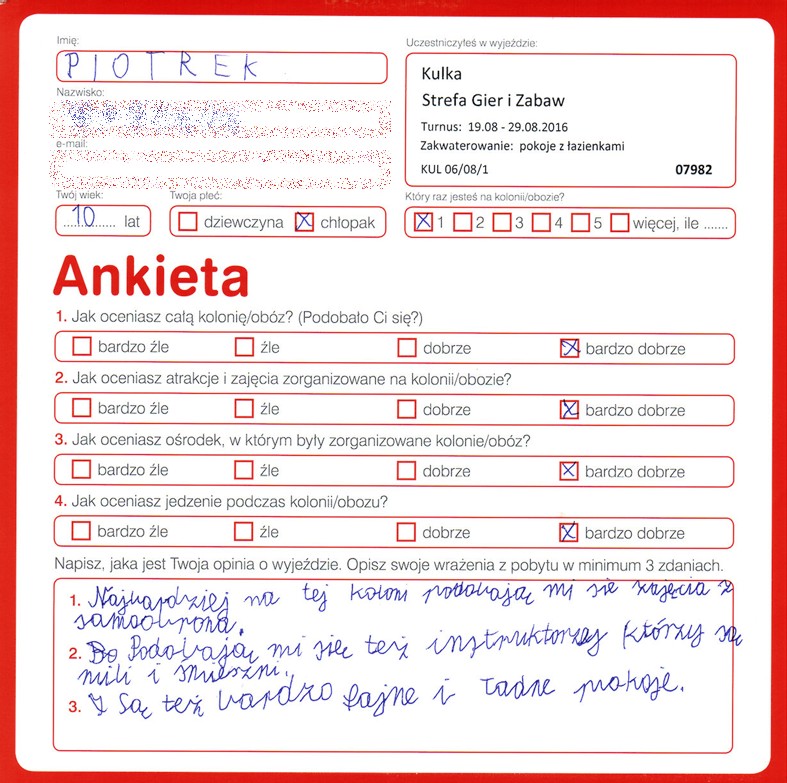 Imię:
PIOTREK
Nazwisko:
e-mail:
Twój wiek:
10 lat
Twoja płeć:
dziewczyna chłopak
Uczestniczyłeś w wyjeździe:
Kulka
Strefa Gier i Zabaw
Turnus: 19.08 - 29.08.2016
Zakwaterowanie: pokoje z łazienkami
KUL 06/08/1 07982
Który raz jesteś na kolonii/obozie?
1 2 3 4 5 więcej, ile .......
Ankieta
1. Jak oceniasz całą kolonię/obóz? (Podobało Ci się?)
bardzo źle źle dobrze bardzo dobrze
2. Jak oceniasz atrakcje i zajęcia zorganizowane na kolonii/obozie?
bardzo źle źle dobrze bardzo dobrze
3. Jak oceniasz ośrodek, w którym były zorganizowane kolonie/obóz?
bardzo źle źle dobrze bardzo dobrze
4. Jak oceniasz jedzenie podczas kolonii/obozu?
bardzo źle źle dobrze bardzo dobrze
Napisz, jaka jest Twoja opinia o wyjeździe. Opisz swoje wrażenia z pobytu w minimum 3 zdaniach.
1. Najbardziej na tej koloni podobają mi sie zajęcia z
samoobrona.
2. Podobają mi się też instruktorzy którzy są
mili i śmieszni.
3. Są też bardzo fajne i ładne pokoje.